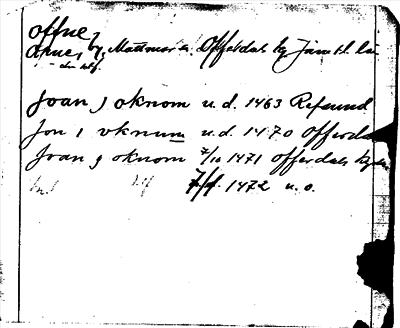 offne
arne, by, Mattmar s. Offerdals by Jämtl. län
Joan j oknom u.d. 1463 Refsund
Jon i vknum u.d. 1470 Offerdal
Joan j oknom 7/10 1471 Offerdals by
7/1 1472 u.o.